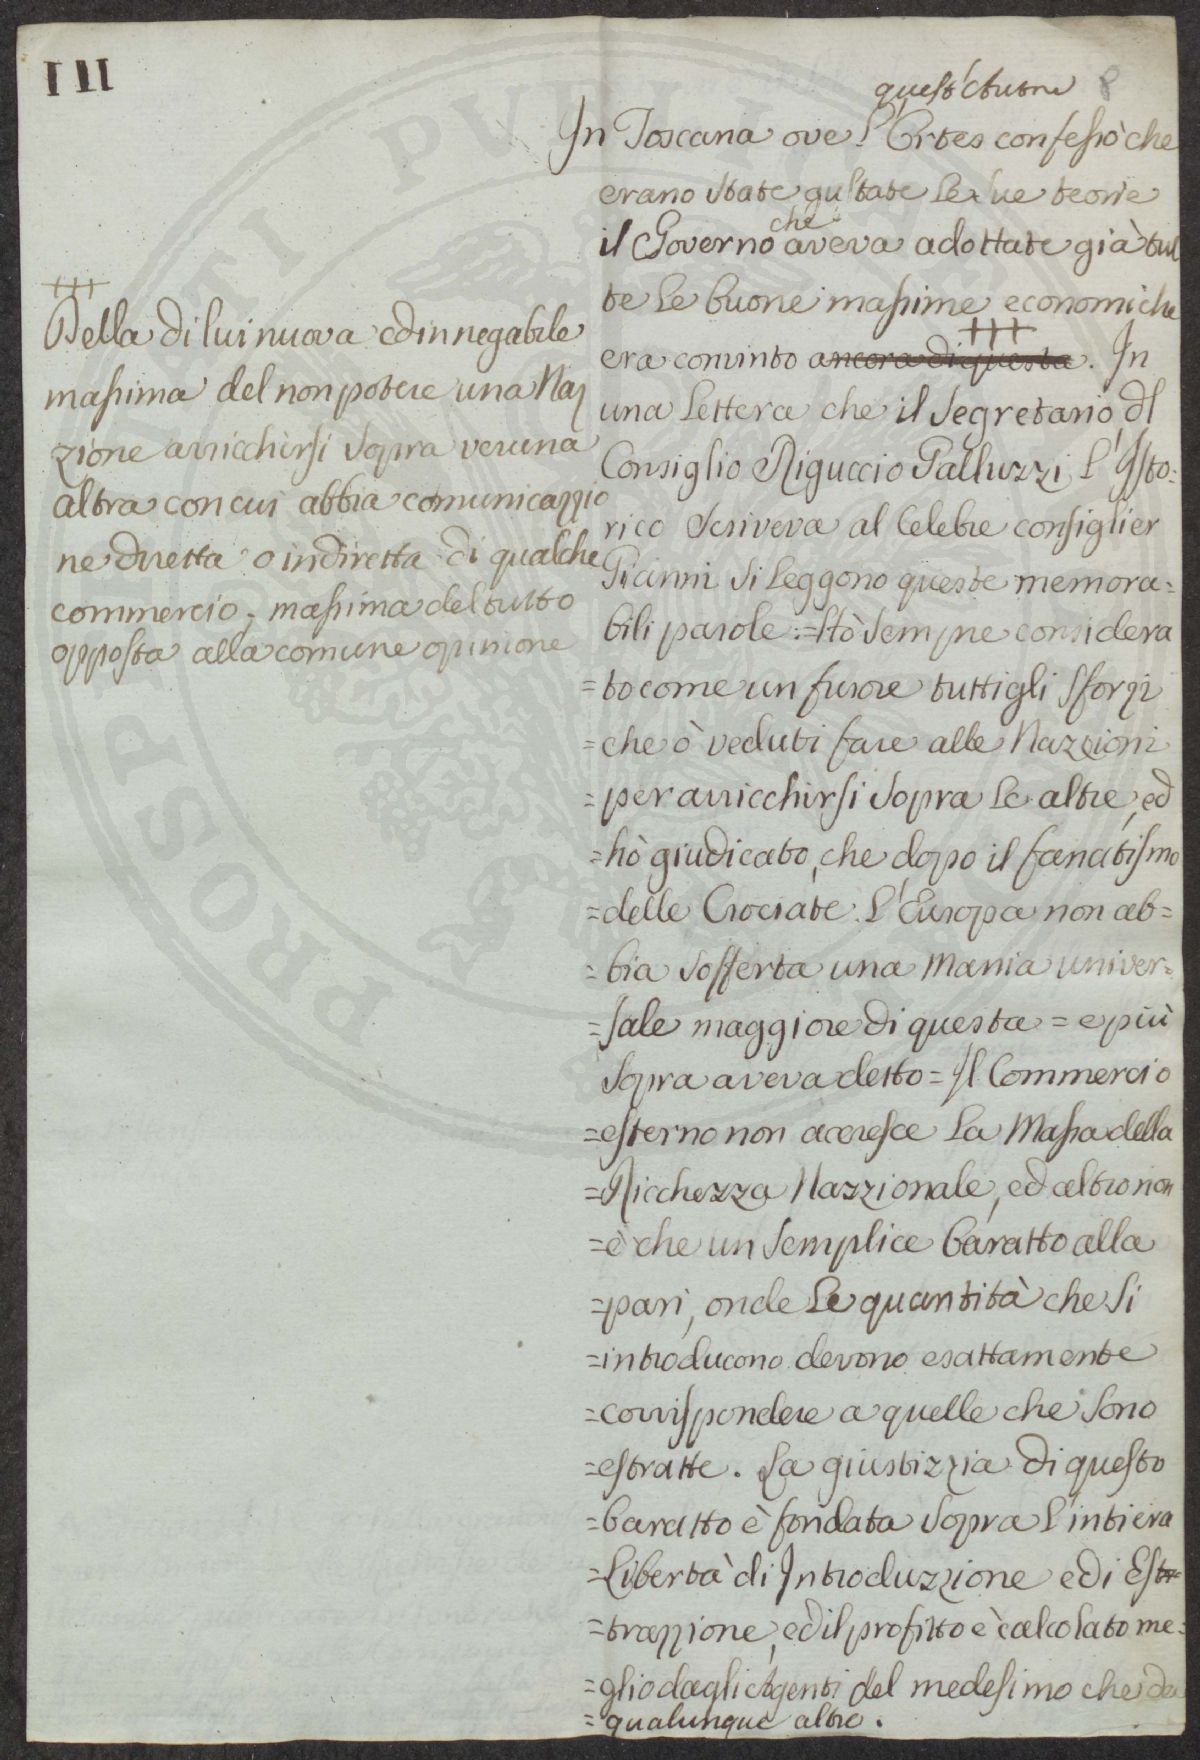 III
8
quest'Autore
In Toscana ove l'Ortes confessò che
erano state gustate le sue teorie
che
il Governo aveva adottate già tut
te le buone massime economiche
+++
era convinto ancora di questa. In
una lettera che il Segretario dl
Consiglio Riguccio Galluzzi l'Isto=
rico scriveva al celebre consiglier
Gianni si leggono queste memora=
bili parole:=Hò sempre considera
=to come un furore tutti gli sforzi
=che ò veduti fare alle Nazzioni
=per arricchirsi sopra le altre, ed
=hò giudicato, che dopo il fanatismo
=delle Crociate l'Europa non ab=
=bia sofferta una Mania univer=
=sale maggiore di questa = e più
sopra aveva detto = Il Commercio
=esterno non accresce la Massa della
=Ricchezza Nazzionale, ed altro non
=è che un semplice baratto alla
=pari, onde le quantità che si
=introducono devono esattamente
=corrispondere a quelle che sono
=estratte. La giustizzia di questo
=baratto è fondata sopra l'intiera
=Libertà di Introduzzione e di Est
=trazzione, ed il profitto è calcolato me=
=glio dagli Agenti del medesimo che da
=qualunque altro.
+++
Della di lui nuova ed innegabile
massima del non potere una Naz
zione arricchirsi sopra veruna
altra con cui abbia comunicazzio
ne diretta o indiretta di qualche
commercio; massima del tutto
opposta alla comune opinione
PROSPERITATI PUBLICAE